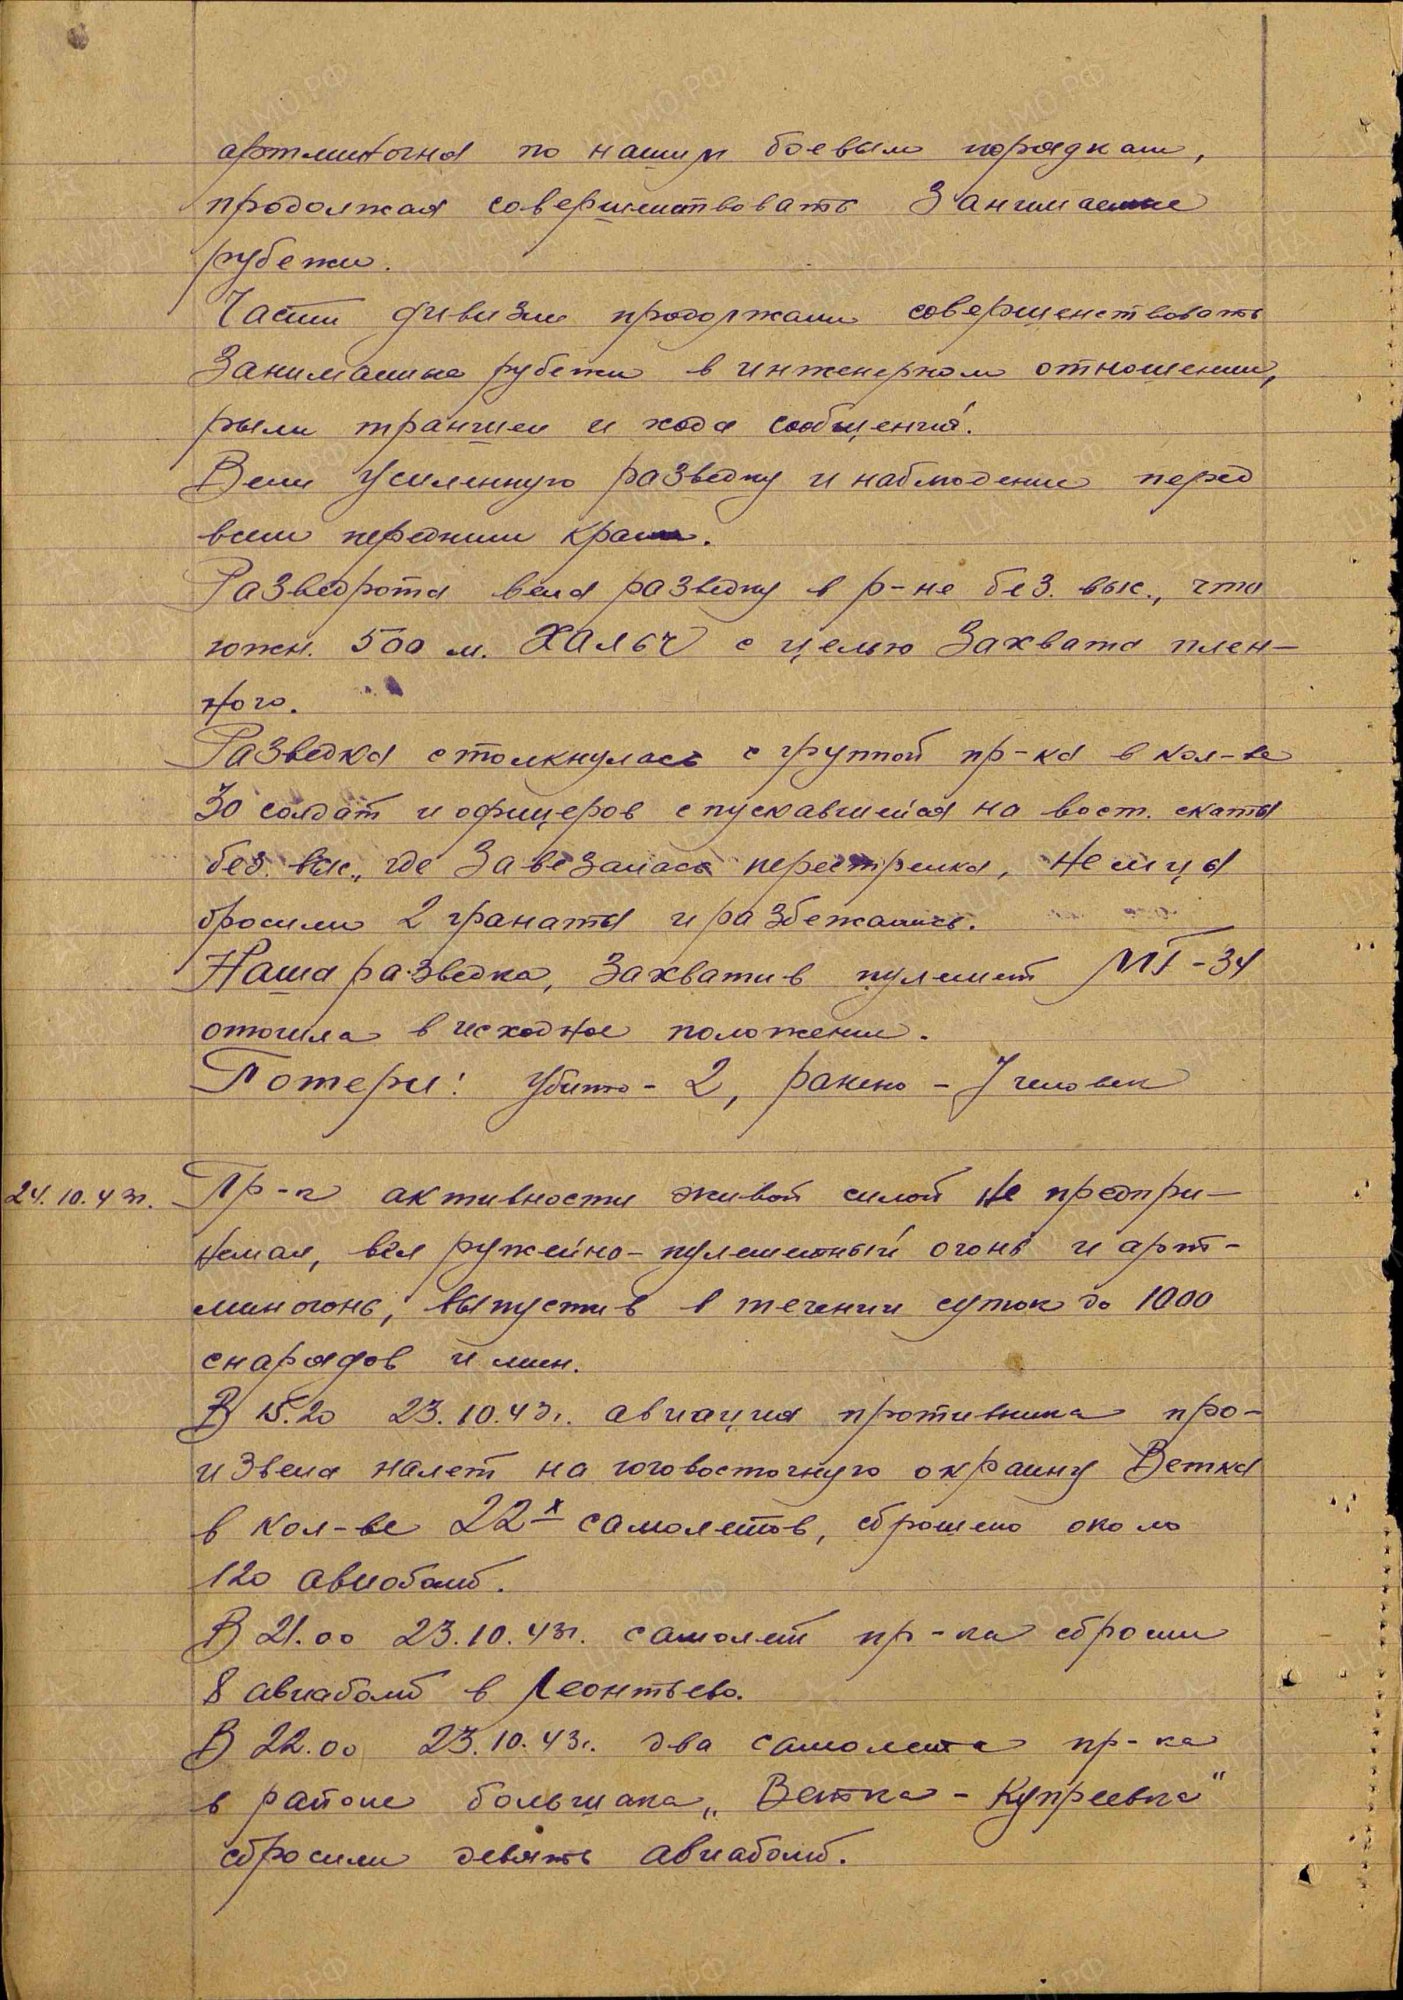 артминогня по нашим боевым порядкам,
продолжая совершенствовать занимаемые
рубежи.
Части дивизии продолжали совершенствовать
занимаемые рубежи в инженерном отношении,
рыли траншеи и хода сообщения.
Вели усиленную разведку и наблюдение перед
всем передним краем.
Разведрота вела разведку в р-не без. выс., что
южн. 500 м. ХАЛЬЧ с целью захвата плен-
ного.
Разведка столкнулась с группой пр-ка в кол-ве
30 солдат и офицеров спускавшейся на вост. скаты
без. выс., где завезалась перестрелка, немцы
бросили 2 гранаты и разбежались.
Наша разведка, захватив пулемет МГ-34
отошла в исходное положение.
Потери: убито - 2, ранено - 7 человек
24.10.43г. Пр-к активности живой силой не предпри-
немал, вёл ружейно-пулеметный огонь и арт-
миногонь, выпустив в течении суток до 1000
снарядов и мин.
В 15.20 23.10.43г. авиация противника про-
извела налет на юговосточную окраину Ветка
в кол-ве 22х самолетов, сброшено около
120 авиобомб.
В 21.00 23.10.43г. самолет пр-ка сбросил
8 авиабомб в Леонтьево.
В 22.00 23.10.43г. два самолета пр-ка
в районе большака „Ветка - Купреевка"
сбросили девять авиабомб.
ЦАМО.РФ
ПАМЯТЬ НАРОДА